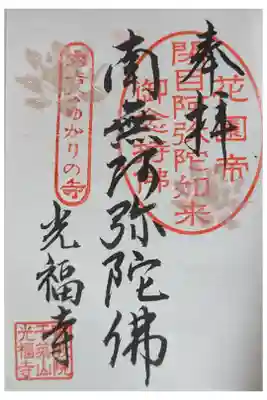 奉拝
花園帝
開目阿弥陀如来
御念持佛
南無阿弥陀佛
ゆかりの寺
光福寺
光福寺